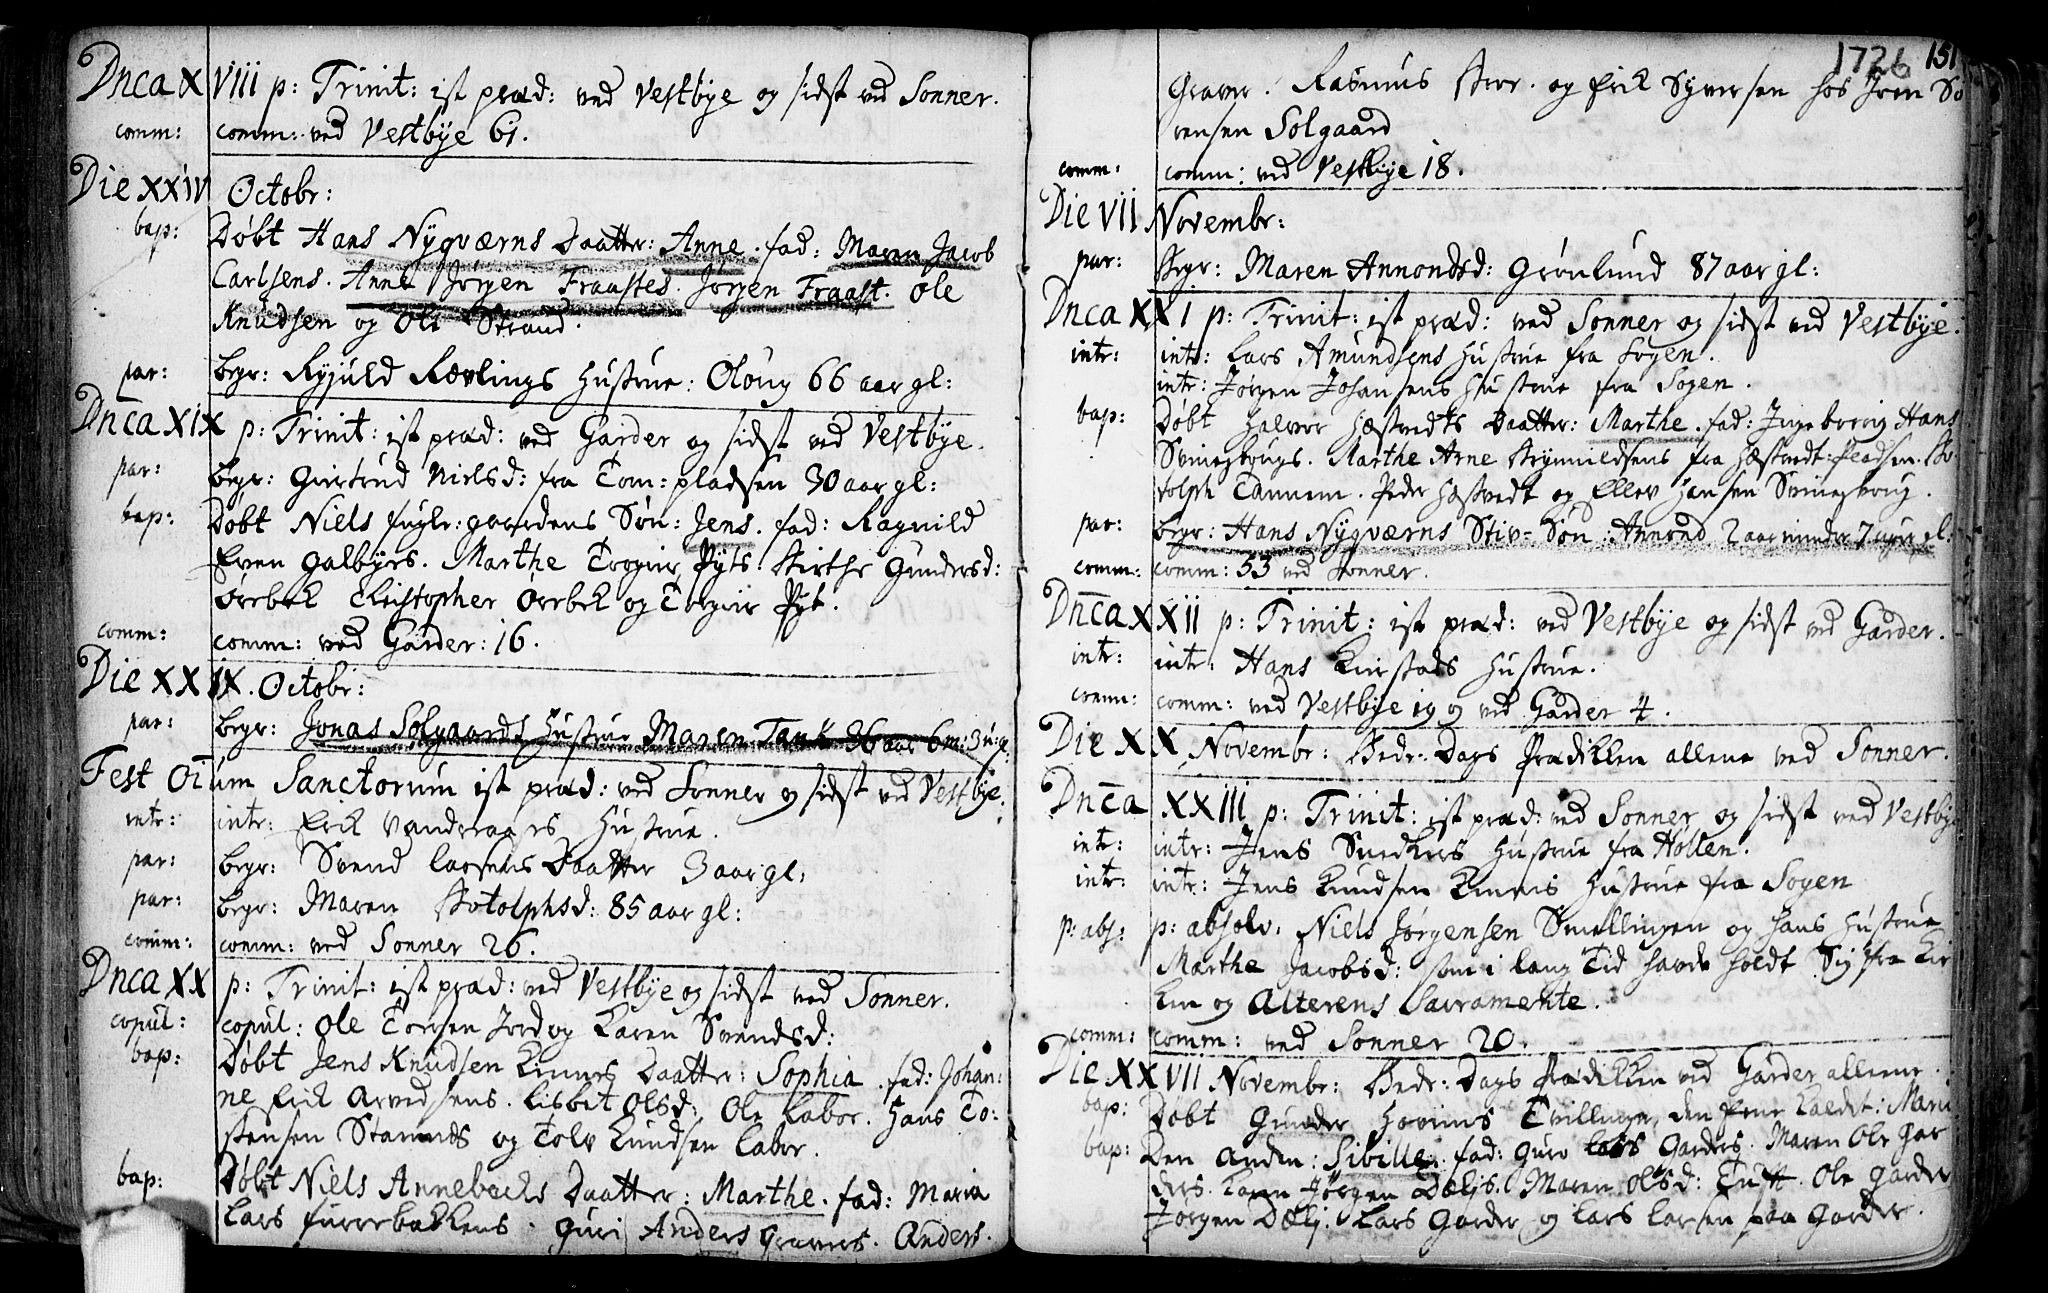 Dnca XVIII p: Trinit: ist præd: ved Vestbye og sidst ved Sonner.
comm: comm: ved Vestbye 61.
Die XXIV Octobr:
bap: Døbt Hans Nyqværns Daatter: Anne. fad: Maren Jacob
Carlsens. Anne Jørgen Fraastes. Jørgen Fraast. Ole
Knudsen og Ole Strand.
par: begr: Hustrue: 66 aar gl:
Dnca XIX p: Trinit: ist præd: ved Garder og sidst ved Vestbye.
par: begr: Giertrud Nielsd: fra Tom-pladsen 30 aar gl:
bap: Døbt Niels Søn: Jens. fad: Ragnild
Even Galbyes. Marthe Pyts. Birthe Gundersd:
Ørebek Christopher Ørebek og Pyt.
comm: comm: ved Garder: 16.
Die XXIX. Octobr:
par: begr: Jonas Solgaards Hustrue Maren Tank 36 aar 6 m: 3 u: gl:
Fest Oium Sanctorum ist præd: ved Sonner og sidst ved Vestbye.
intr: intr: Erick Hustrue.
par: begr: Svend Larsens Daatter 3 aar gl:
par: begr: Maren Botolphsd: 85 aar gl:
comm: comm: ved Sonner 26.
Dnca XX p: Trinit: ist præd: ved Vestbye og sidst ved Sonner.
copul: copul: Ole Torsen Jord og Karen Svendsd:
bap: Døbt Jens Knudsen Daatter: Sophia. fad: Johan-
ne Erick Arvedsens. Lisbet Olsd: Ole Labor. Hans To-
stensen og Tolv Knudsen Labor.
bap: Døbt Niels Annebechs Daatter: Marthe. fad: Maria
Lars Furrebakkens. Guri Anders Gravers. Anders
1726 151
Graver. Rasmus og Erick Syversen hos Jven Sö-
rensen Solgaard
comm: comm: ved Vestbye 18.
Die VII Novembr:
par: Begr: Maren Annondsd: Grønlund 87 aar gl:
Dnca XXI p: Trinit: ist præd: ved Sonner og sidst ved Vestbye.
intr: intr: Lars Amundsens Hustrue fra Sogen.
intr: Jørgen Johansens Hustrue fra Sogen.
bap: Døbt Halvor Hæstvedts Daatter: Marthe. fad: Ingeborrig Hans
Svinesborgs. Marthe Arne fra Hæstvedt-Pladsen. Bo-
tolph Tannem. Peder Hæstvedt og Ellev Hansen Svinesborg.
par: begr: Hans Nyqværns Stiv-Søn: Annond 2 aar minder 7 uger gl:
comm: comm: 53 ved Sonner.
Dnca XXII p: Trinit: ist præd: ved Vestbye og sidst ved Garder.
intr: intr: Hans Hustrue.
comm: comm: ved Vestbye 19 og ved Garder 4.
Die XX Novembr: Bede-Dags Prædikken allene ved Sonner.
Dnca XXIII p: Trinit: ist præd: ved Sonner og sidst ved Vestbye
intr: intr: Jens Snedkers Hustrue fra Hollen.
intr: intr: Jens Knudsen Hustrue fra Sogen
p: abs: p: absolv: Niels Jørgensen Smellingen og hans Hustrue
Marthe Jacobsd: som i lang Tid havde holdt Sig fra Kir-
ken og Alterens Sacramente.
comm: comm: ved Sonner 20.
Die XXVII Novembr: Bede-Dags Prædikken ved Garder allene.
bap: Døbt Gunder Tvillinger, den Eene kaldet: Mari
bap: Den anden: Sibille. fad: Guro Lars Garders. Maren Ole Gar-
ders. Karen Jørgen Dælis. Maren Olsd: Tuft. Ole Garder
Jørgen Dæli. Lars Garder og Lars Larsen paa Garder.